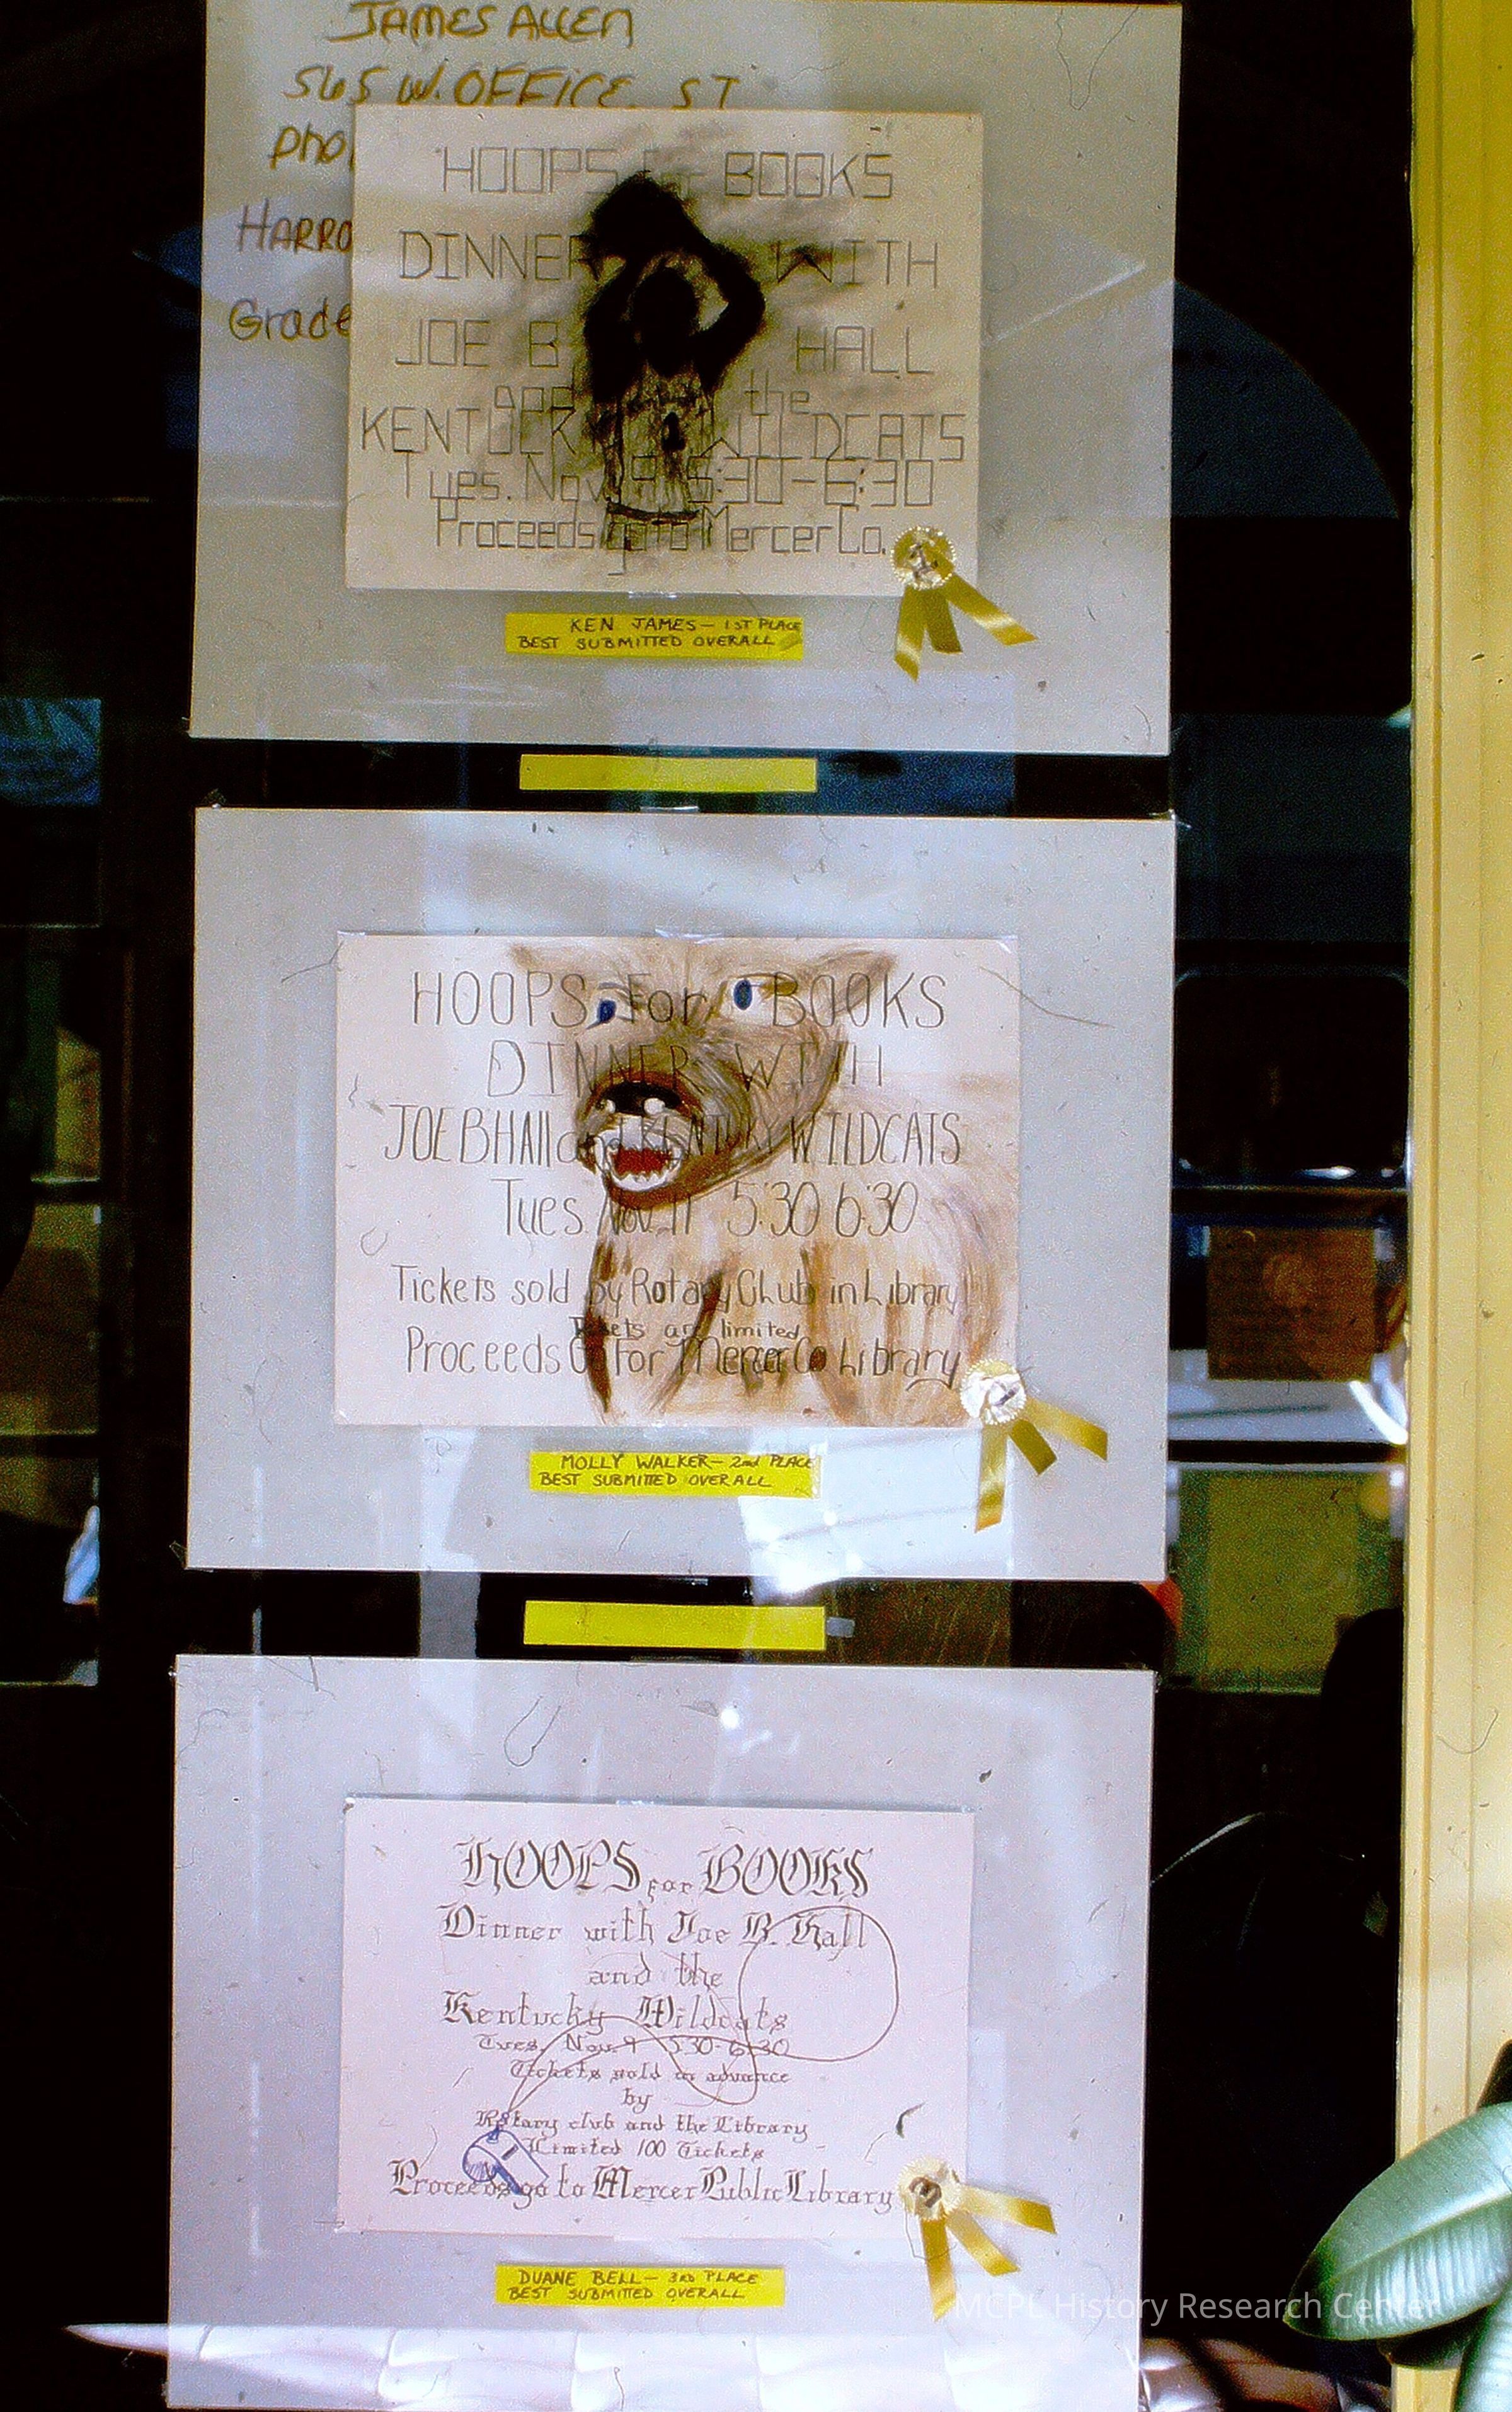 JAMES ALLEN
565 W. OFFICE ST
HARRO
Grade
HOOPS for BOOKS
DINNER WITH
JOE B HALL
and the
KENTUCKY WILDCATS
Tues. Nov. 9 5:30-6:30
Proceeds go to Mercer Co.
1
KEN JAMES - 1ST PLACE
BEST SUBMITTED OVERALL
HOOPS For BOOKS
DINNER WITH
JOE B HAll and KENTUCKY WILDCATS
Tues. Nov. 5:30 6:30
Tickets sold by Rotary Club in Library
Tickets are limited
Proceeds Go For Mercer Co Library
MOLLY WALKER - 2nd PLACE
BEST SUBMITTED OVERALL
HOOPS for BOOKS
Dinner with Joe B. Hall
and the
Kentucky Wildcats
Tues. Nov. 9 5:30-6:30
Tickets sold in advance
by
Rotary club and the Library
Limited 100 Tickets
Proceeds go to Mercer Public Library
3
DUANE BELL - 3RD PLACE
BEST SUBMITTED OVERALL
MCPL History Research Center